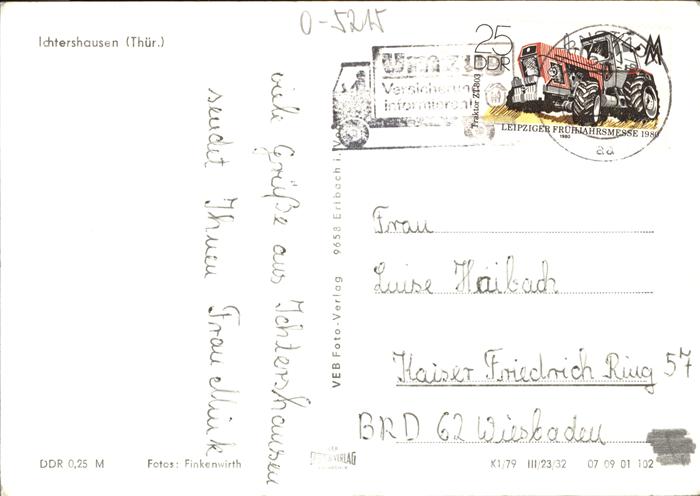 Ichtershausen (Thür.)
0-5215
viele Grüße aus Ichtershausen
sendet Ihnen Frau Mink
25
DDR
Traktor ZT-303
LEIPZIGER FRÜHJAHRSMESSE 1980
1980
Umzug
Versicherung
informieren
aa
VEB Foto-Verlag 9658 Erlbach i. V.
Frau
Luise Haibach
Kaiser Friedrich Ring 57
BRD 62 Wiesbaden
DDR 0,25 M
Fotos: Finkenwirth
VERLAG
K1/79 III/23/32 07 09 01 102